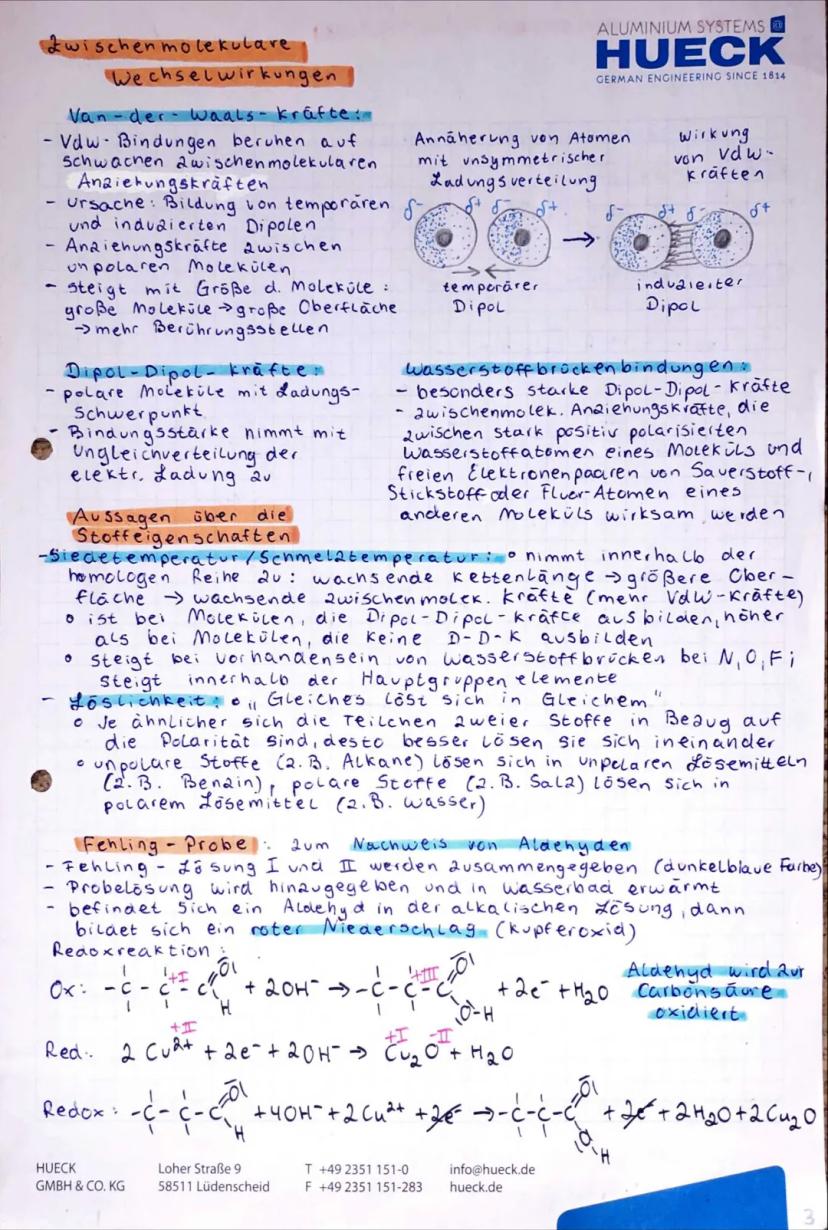 ALUMINIUM SYSTEMS
HUECK
GERMAN ENGINEERING SINCE 1814
Zwischenmolekulare
Wechselwirkungen
Van-der-Waals-Kräfte:
- VdW-Bindungen beruhen auf
schwachen zwischenmolekularen
Anziehungskräften
- Ursache: Bildung von temporären
und induzierten Dipolen
- Anziehungskräfte zwischen
unpolaren Molekülen
- steigt mit Größe d. Moleküle:
große Moleküle → große Oberfläche
→ mehr Berührungsstellen
Annäherung von Atomen
mit unsymmetrischer
Ladungsverteilung
Wirkung
von VdW-
Kräften
δ- δ+ δ- δ+ → δ- δ+ δ- δ+
temporärer
Dipol
induzierter
Dipol
Dipol-Dipol-Kräfte:
- polare Moleküle mit Ladungs-
Schwerpunkt
- Bindungsstärke nimmt mit
Ungleichverteilung der
elektr. Ladung zu
Wasserstoffbrückenbindungen:
- besonders starke Dipol-Dipol-Kräfte
- zwischenmolek. Anziehungskräfte, die
zwischen stark positiv polarisierten
Wasserstoffatomen eines Moleküls und
freien Elektronenpaaren von Sauerstoff-,
Stickstoff oder Fluor-Atomen eines
anderen Moleküls wirksam werden
Aussagen über die
Stoffeigenschaften
- Siedetemperatur/Schmelztemperatur: ° nimmt innerhalb der
homologen Reihe zu: wachsende Kettenlänge → größere Ober-
fläche → wachsende zwischenmolek. Kräfte (mehr VdW-Kräfte)
° ist bei Molekülen, die Dipol-Dipol-Kräfte ausbilden, höher
als bei Molekülen, die keine D-D-K ausbilden
° steigt bei Vorhandensein von Wasserstoffbrücken bei N, O, F;
steigt innerhalb der Hauptgruppenelemente
- Löslichkeit: ° „Gleiches löst sich in Gleichem"
° Je ähnlicher sich die Teilchen zweier Stoffe in Bezug auf
die Polarität sind, desto besser lösen sie sich ineinander
° unpolare Stoffe (z.B. Alkane) lösen sich in unpolaren Lösemitteln
(z.B. Benzin), polare Stoffe (z.B. Salz) lösen sich in
polarem Lösemittel (z.B. Wasser)
Fehling-Probe: zum Nachweis von Aldehyden
- Fehling-Lösung I und II werden zusammengegeben (dunkelblaue Farbe)
- Probelösung wird hinzugegeben und in Wasserbad erwärmt
- befindet sich ein Aldehyd in der alkalischen Lösung, dann
bildet sich ein roter Niederschlag (Kupferoxid)
Redoxreaktion:
Ox: -C-C-C +I O H + 2OH⁻ → -C-C-C +III O O-H + 2e⁻ + H₂O
Aldehyd wird zur
Carbonsäure
oxidiert
+II +I -II
Red.: 2 Cu²⁺ + 2e⁻ + 2OH⁻ → Cu₂O + H₂O
Redox: -C-C-C O H + 4OH⁻ + 2Cu²⁺ + 2e⁻ → -C-C-C O O H + 2e⁻ + 2H₂O + 2Cu₂O
HUECK
GMBH & CO. KG
Loher Straße 9
58511 Lüdenscheid
T +49 2351 151-0
F +49 2351 151-283
info@hueck.de
hueck.de
3